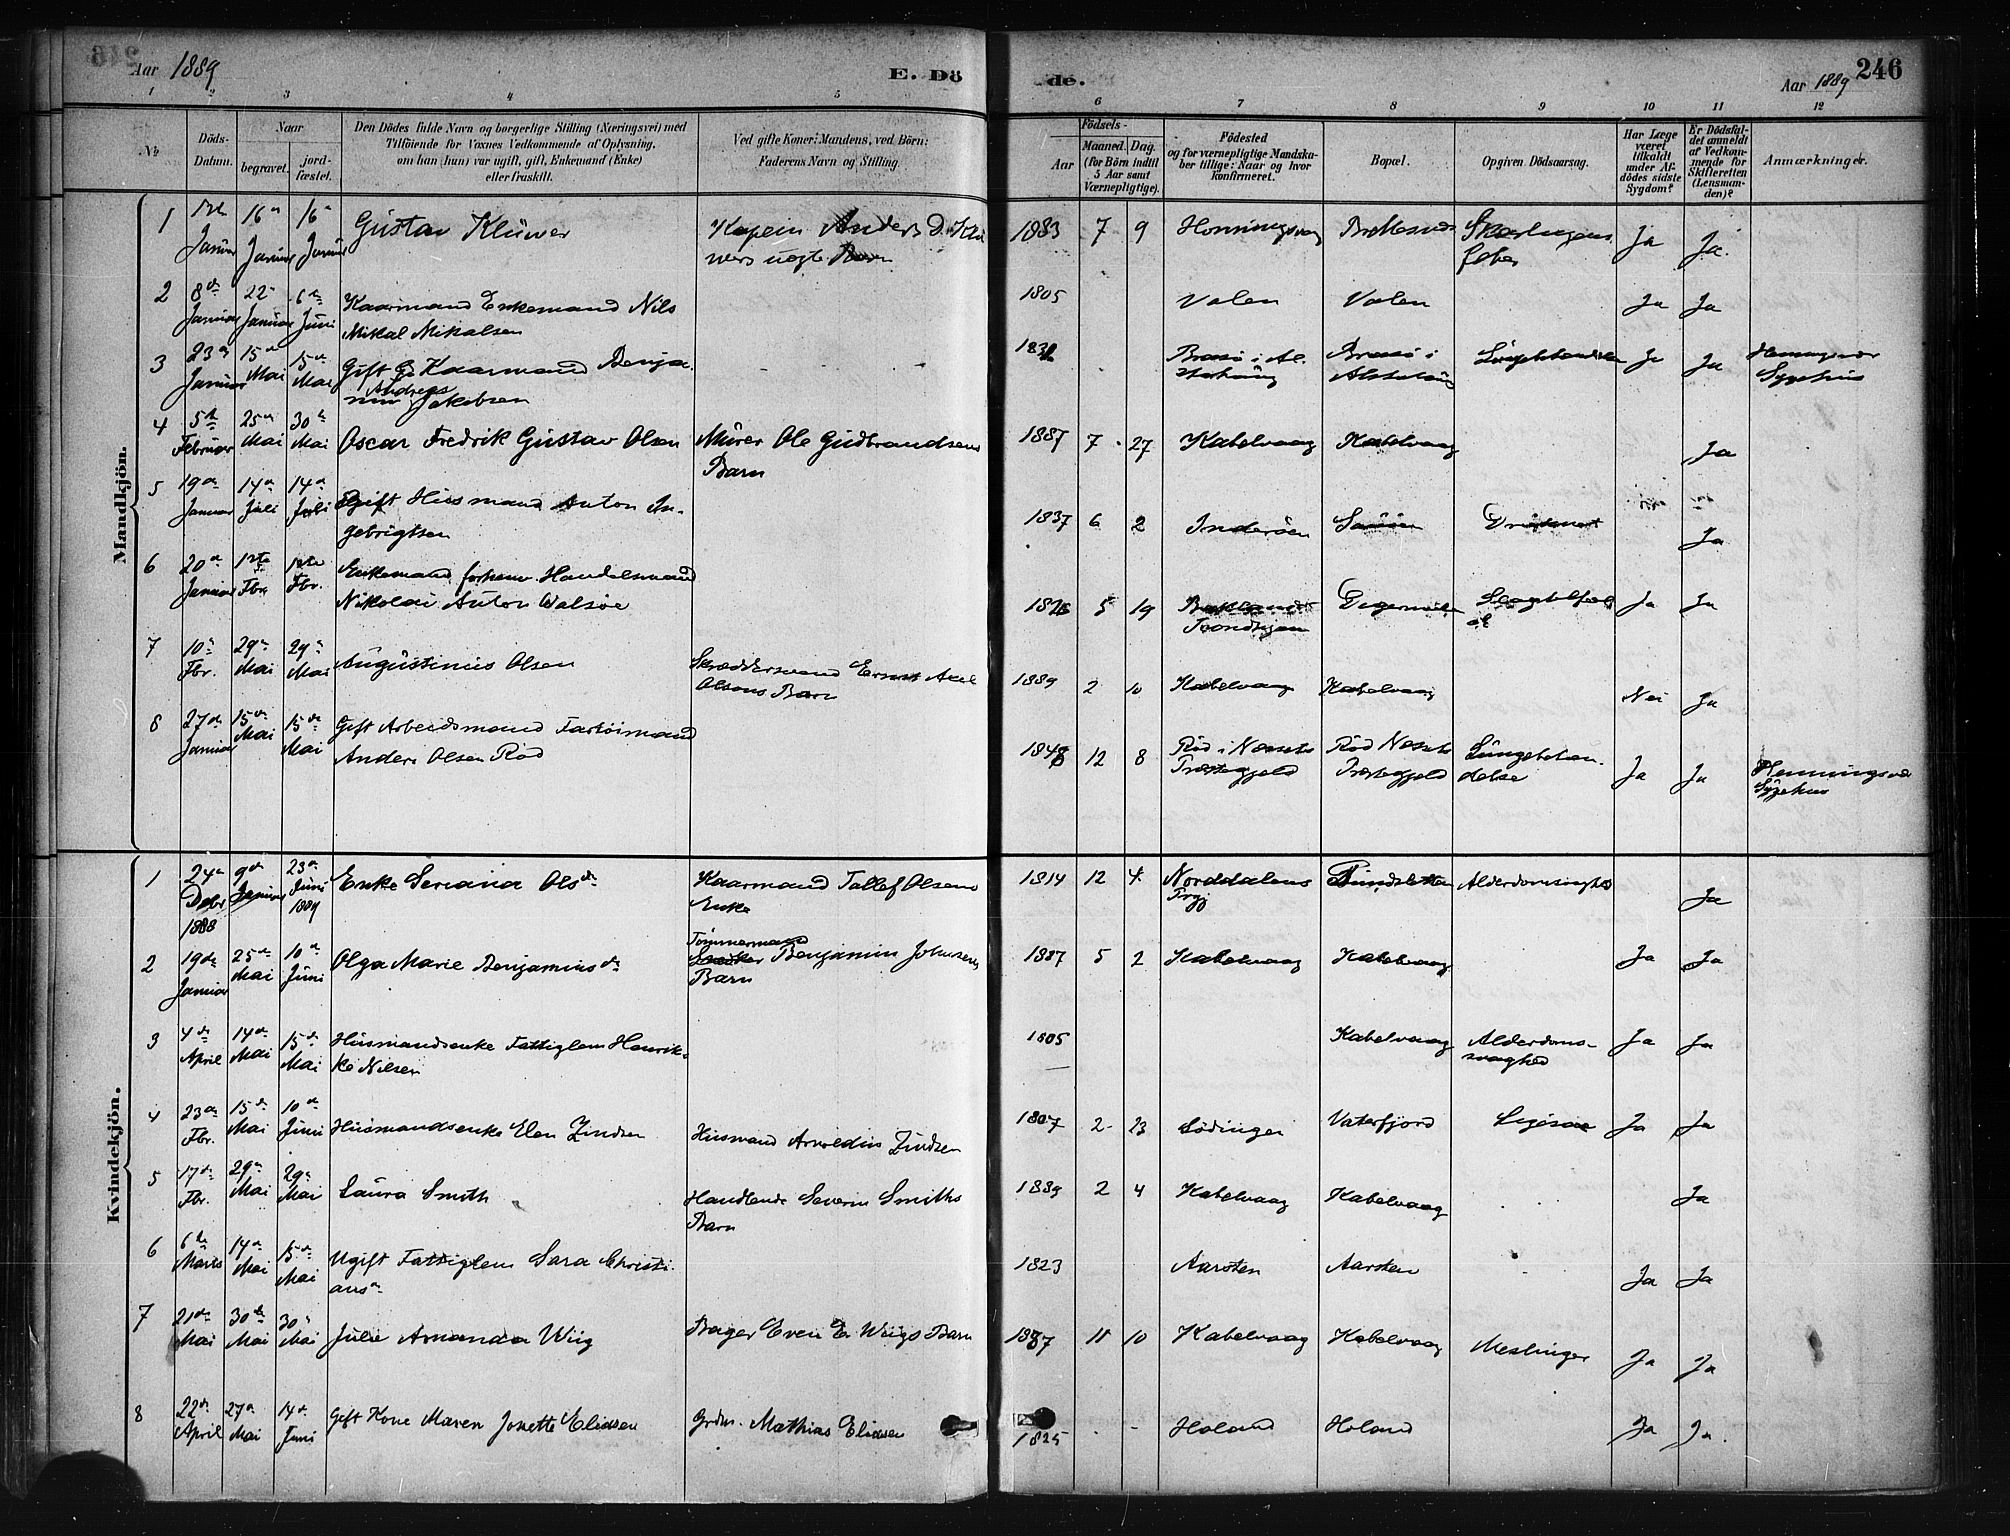 Aar 1889
E. Dö
de.
246
Aar 1889
1 2 3 4 5 6 7 8 9 10 11 12
№
Döds-
Datum.
Naar
begravet.
jord-
fæstet.
Den Dödes fulde Navn og borgerlige Stilling (Næringsvei) med
Tilföiende for Voxnes Vedkommende af Oplysning,
om han (hun) var ugift, gift, Enkemand (Enke)
eller fraskilt.
Ved gifte Koner: Mandens, ved Börn:
Faderens Navn og Stilling.
Födsels-
Aar
Maaned. Dag.
(for Börn indtil
5 Aar samt
Værnepligtige).
Födested
og for værnepligtige Mandska-
ber tillige: Naar og hvor
konfirmeret.
Bopæl.
Opgiven Dödsaarsag.
Har Læge
været
tilkaldt
under Af-
dödes sidste
Sygdom?
Er Dödsfal-
det anmeldt
af Vedkom-
mende for
Skifteretten
(Lensman-
den)?
Anmærkninger.
Mandkjön.
1 Januar 16 Januar 16 Januar Gustav Klüwer Anders D. Klü
wers uægte Barn 1883 7 9 Honningsvaag Ja Ja.
2 8de Januar 22 Januar 6te Juni Kaarmand Enkemand Nils
Mikal Mikalsen 1805 Valen Valen Ja Ja
3 23de Januar 15de Mai 15de Mai Gift Kaarmand Benja-
min Andreas Jakobsen Brasö i Al-
stahaug Brasö i
Alstahaug Ja Ja Henningsvær
Sygehus
4 5te Februar 25de Mai 30te Mai Oscar Fredrik Gustav Olsen Mürer Ole Gudbrandsens
Barn 1887 7 27 Kabelvaag Kabelvaag Ja
5 19de Januar 14de Juli 14de Juli Gift Husmand Anton In-
gebrigtsen 1837 6 2 Inderöen Ja
6 20de Januar 1ste Fbr. 1ste Fbr. Enkemand forhenv. Handelsmand
Nikolai Anton Walsöe 5 19 Trondhjem Digermulen Ja Ja
7 10de Fbr. 29de Mai 29de Mai Augustinus Olsen Skrædersvend Ernst Axel
Olsens Barn 1889 2 10 Kabelvaag Kabelvaag Nei Ja
8 27de Januar 15de Mai 15de Mai Gift Arbeidsmand Fartöimand
Anders Olsen Röd 12 8 Röd i Nessets
Præstegjeld Röd Nessets
Præstegjeld Lungebetæn-
delse Ja Ja Henningsvær
Sygehus
Kvindekjön.
1 24de Decbr 1888 9de Januar 23de Juni 1889 Enke Seriana Olsdr Kaarmand Tollef Olsens
Enke 1814 12 4 Norddalens
Prgj Alderdomssvaghed Ja
2 19de Januar 25de Mai 10de Juni Olga Marie Benjaminsdr Tömmermand
Snedker Benjamin Johnsens
Barn 1887 5 2 Kabelvaag Kabelvaag Ja Ja
3 4de April 14de Mai 15de Mai Husmandsenke Fattiglem Henrik-
ke Nilsen 1805 Kabelvaag Alderdoms-
svaghed Ja Ja
4 23de Fbr. 15de Mai 10de Juni Husmandsenke Elen Zindsen Husmand Arnoldus Zindsen 1807 2 23 Lödingen Vaterfjord Ja Ja
5 17de Fbr. 29de Mai 29de Mai Laura Smith Handlende Severin Smiths
Barn 1889 2 4 Kabelvaag Kabelvaag Ja
6 6te Marts 14de Mai 15de Mai Ugift Fattiglem Sara Christi-
ansdr 1823 Aarsten Aarsten Ja Ja
7 21de Mai 30te Mai 30te Mai Julie Amanda Wiig Bager Even E. Wiigs Barn 1887 11 10 Kabelvaag Kabelvaag Meslinger Ja Ja
8 22de April 27de Mai 14de Juni Gift Kone Maren Jonette Eliasen Grdm. Mathias Eliasen 1825 Holand Holand Ja Ja.